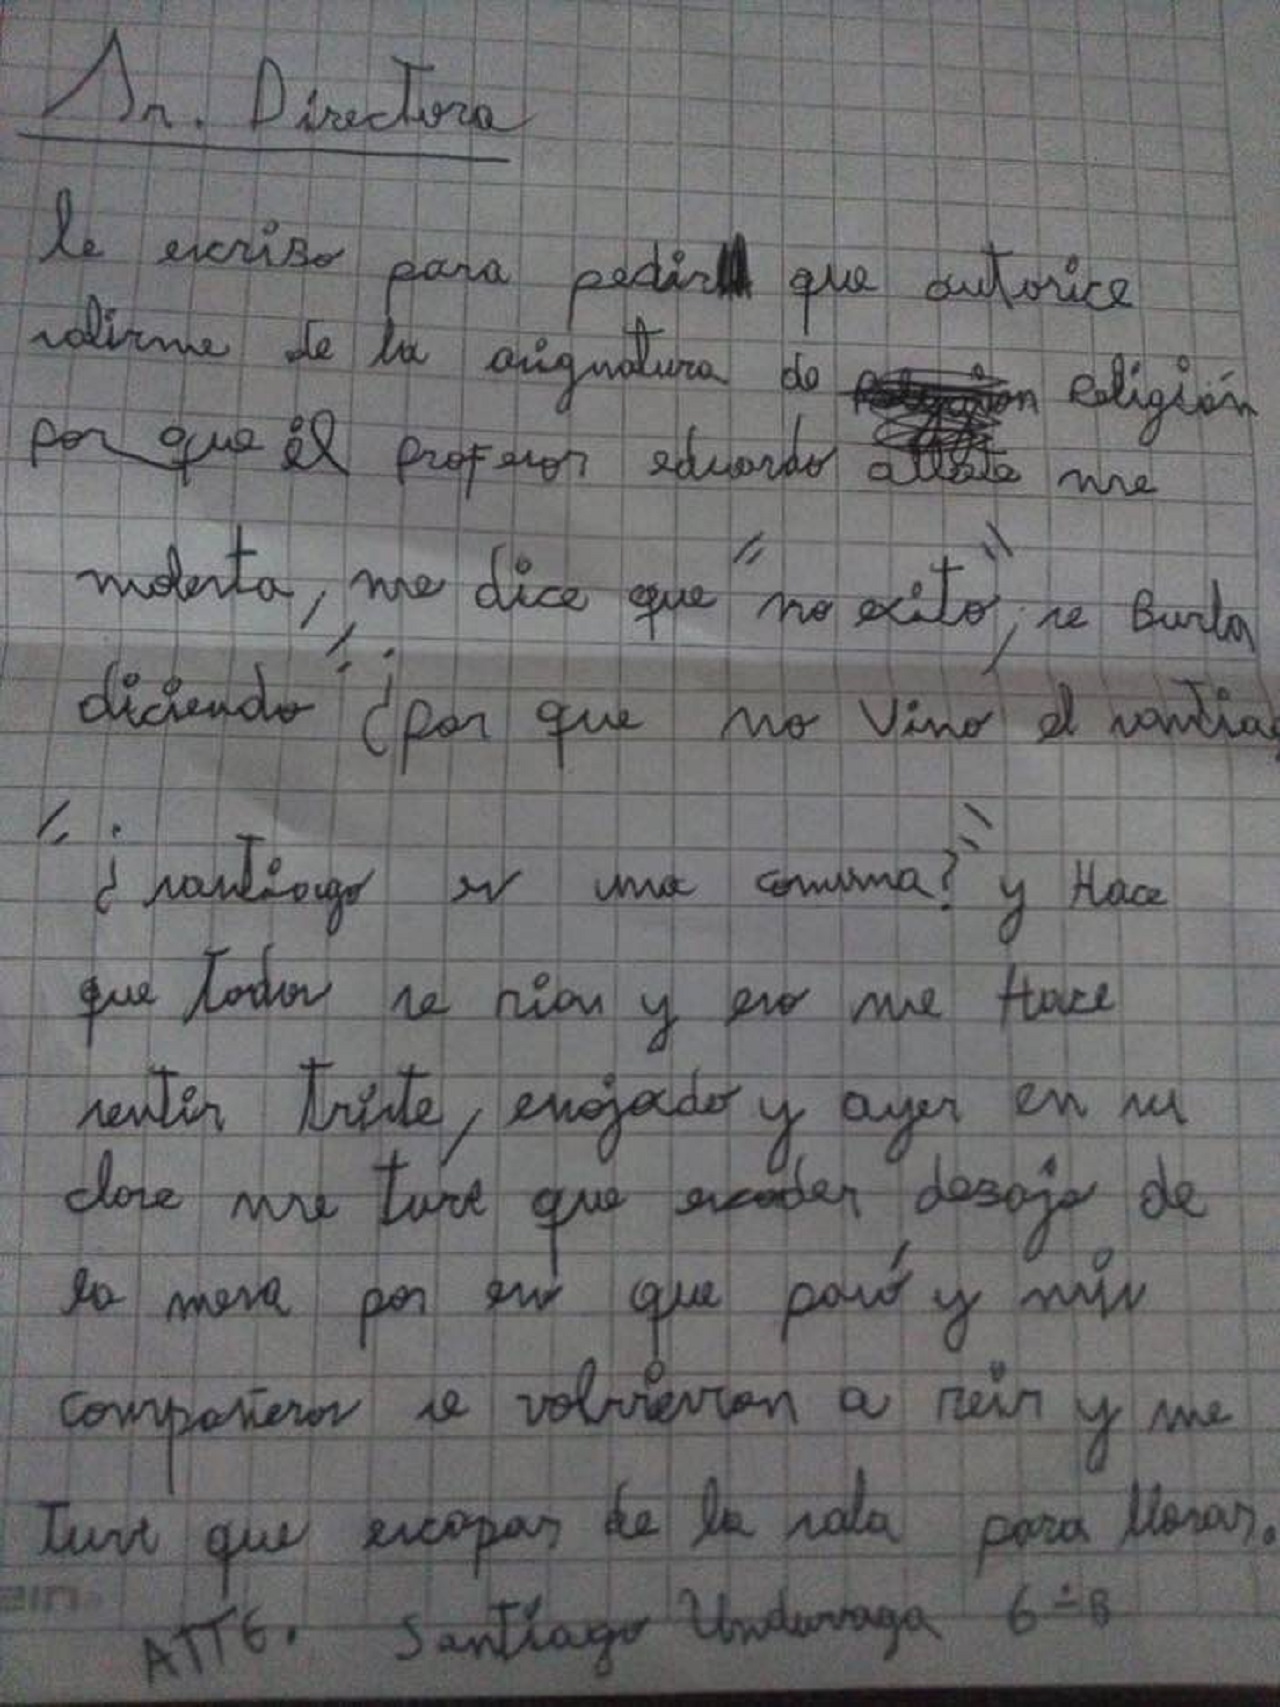 Sr. Directora
le escribo para pedir que autorice
salirme de la asignatura de Religión
por que él profesor eduardo me
molesta, me dice que "no exito", se Burla
diciendo "¿por que no vino el santiag
"¿santiago es una comuna?" y Hace
que todos se rian y eso me Hace
sentir triste, enojado y ayer en su
clase me tuve que esconder desajo de
la mesa por eso que pasó y mis
compañeros se volvieron a reir y me
Tuve que escapar de la sala para llorar.
ATTE. Santiago Undurraga 6-B